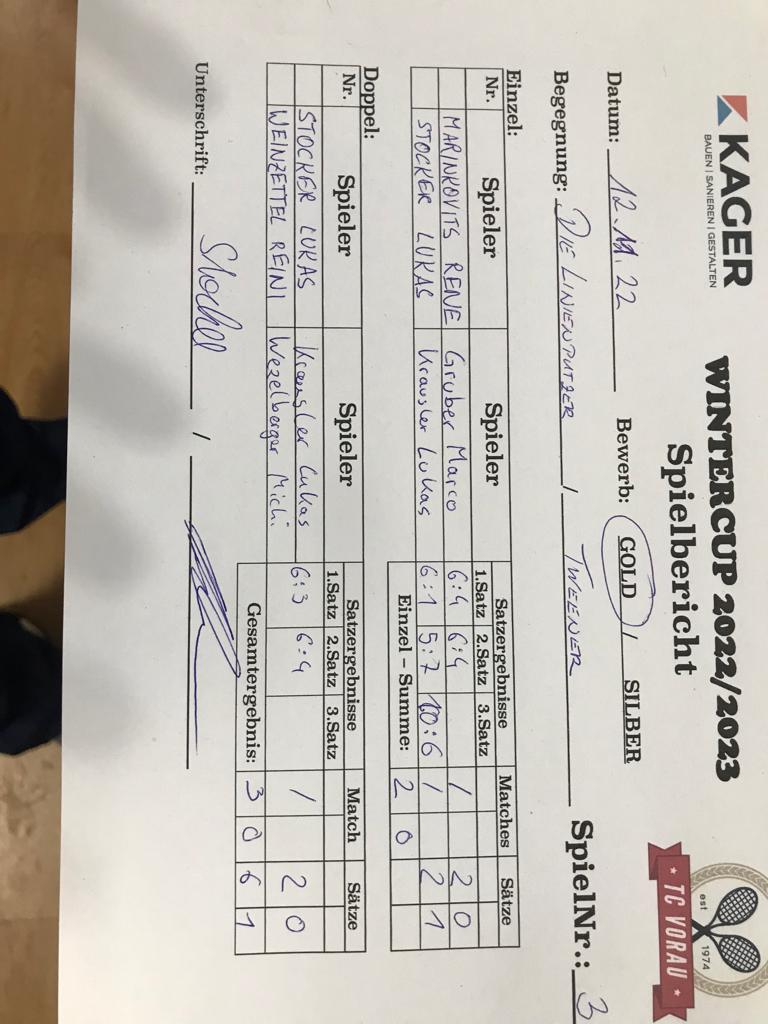 KAGER
BAUEN | SANIEREN | GESTALTEN
WINTERCUP 2022/2023
Spielbericht
est 1974
* TC VORAU *
Datum: 12.11.22 Bewerb: GOLD / SILBER SpielNr.: 3
Begegnung: DIE LINIENPUTZER / TWEENER
Einzel:
Nr. Spieler Spieler Satzergebnisse Matches Sätze
1.Satz 2.Satz 3.Satz
MARINKOVITS RENE Gruber Marco 6:4 6:4 1 2 0
STOCKER LUKAS Krausler Lukas 6:1 5:7 10:6 1 2 1
Einzel – Summe: 2 0
Doppel:
Nr. Spieler Spieler Satzergebnisse Match Sätze
1.Satz 2.Satz 3.Satz
STOCKER LUKAS Krausler Lukas 6:3 6:4 1 2 0
WEINZETTEL REINI Wezelberger Michi
Gesamtergebnis: 3 0 6 1
Unterschrift: /